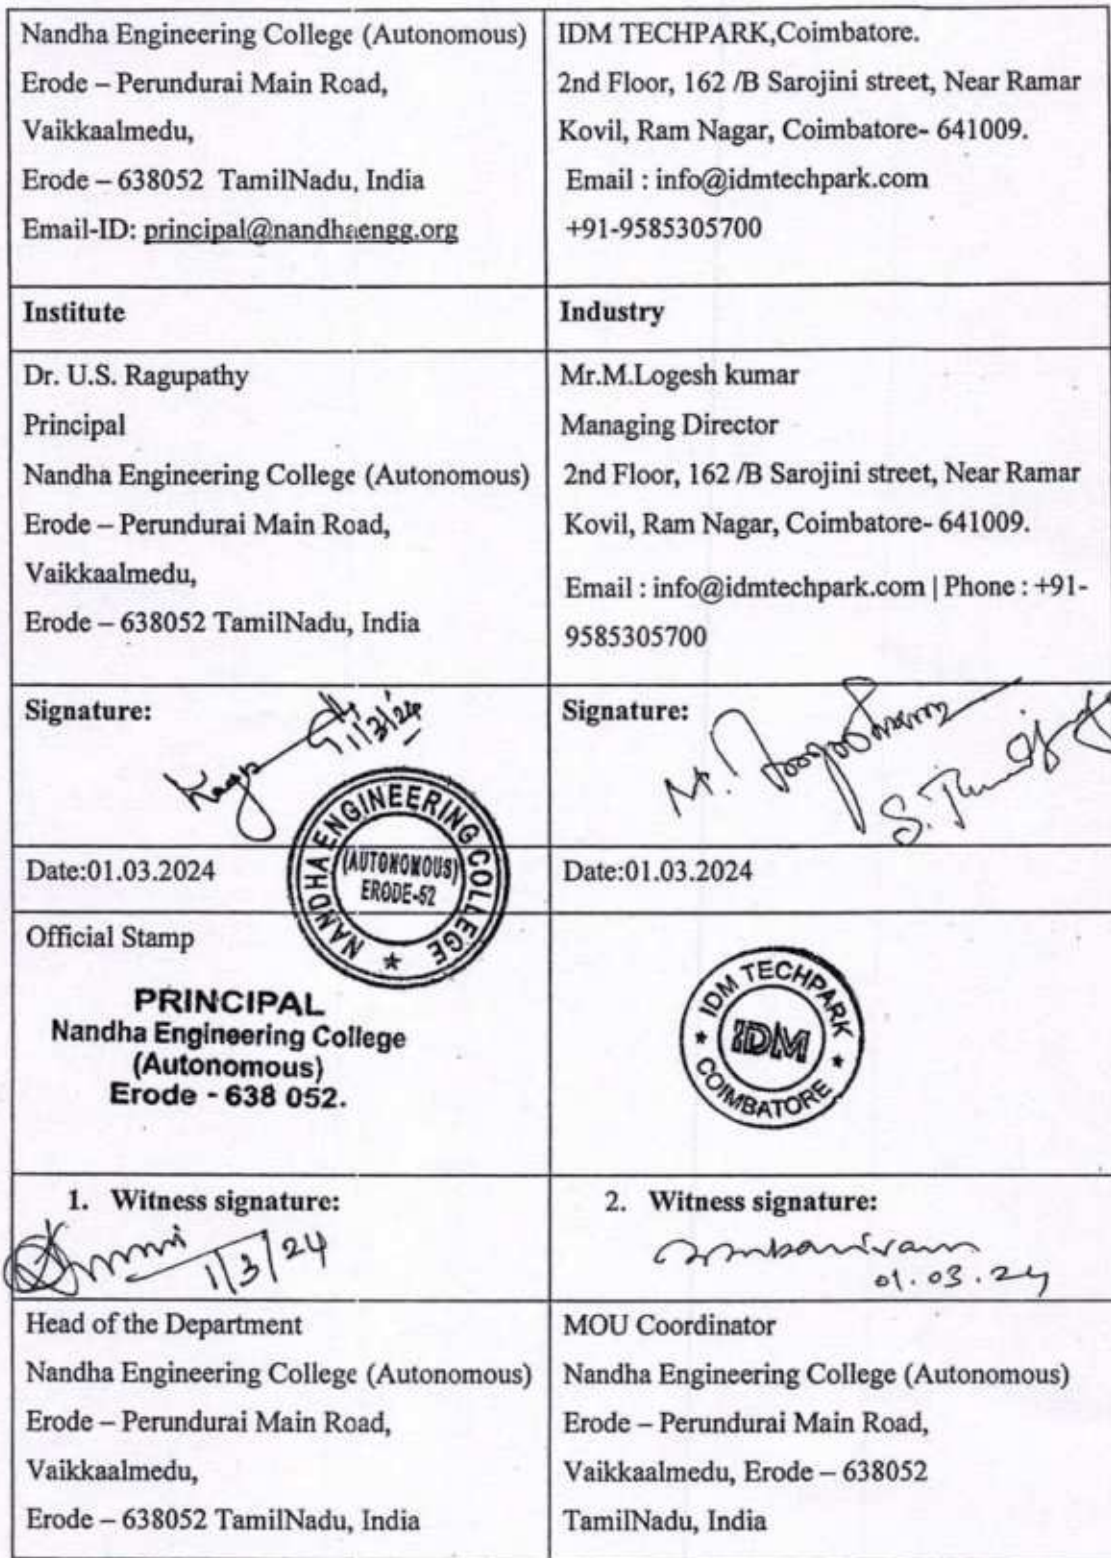 Nandha Engineering College (Autonomous)
Erode – Perundurai Main Road,
Vaikkaalmedu,
Erode – 638052 TamilNadu, India
Email-ID: principal@nandhaengg.org
IDM TECHPARK,Coimbatore.
2nd Floor, 162 /B Sarojini street, Near Ramar
Kovil, Ram Nagar, Coimbatore- 641009.
Email : info@idmtechpark.com
+91-9585305700
Institute
Industry
Dr. U.S. Ragupathy
Principal
Nandha Engineering College (Autonomous)
Erode – Perundurai Main Road,
Vaikkaalmedu,
Erode – 638052 TamilNadu, India
Mr.M.Logesh kumar
Managing Director
2nd Floor, 162 /B Sarojini street, Near Ramar
Kovil, Ram Nagar, Coimbatore- 641009.
Email : info@idmtechpark.com | Phone : +91-
9585305700
Signature:
1/3/24
Signature:
Date:01.03.2024
NANDHA ENGINEERING COLLEGE
(AUTONOMOUS)
ERODE-52
Date:01.03.2024
Official Stamp
PRINCIPAL
Nandha Engineering College
(Autonomous)
Erode - 638 052.
IDM TECHPARK
IDM
COIMBATORE
1. Witness signature:
1/3/24
2. Witness signature:
01.03.24
Head of the Department
Nandha Engineering College (Autonomous)
Erode – Perundurai Main Road,
Vaikkaalmedu,
Erode – 638052 TamilNadu, India
MOU Coordinator
Nandha Engineering College (Autonomous)
Erode – Perundurai Main Road,
Vaikkaalmedu, Erode – 638052
TamilNadu, India